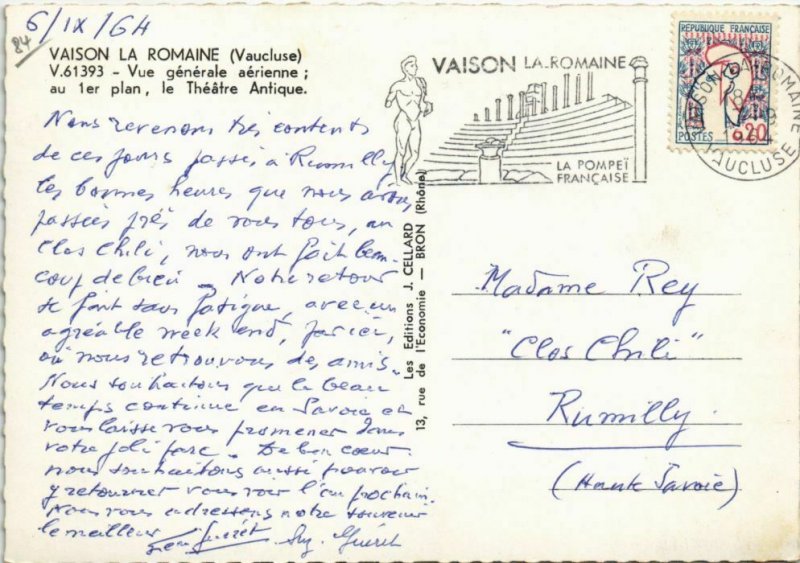 6/IX/64
84
VAISON LA ROMAINE (Vaucluse)
V.61393 - Vue générale aérienne ;
au 1er plan, le Théâtre Antique.
Nous revenons très contents
de ces jours passés à Rumilly
Les bonnes heures que nous avons
passées près de vous tous, au
Clos Chili, nous ont fait beau-
coup de bien. Notre retour
se fait sans fatigue, avec un
agréable week end, par ici,
où nous retrouvons des amis.
Nous souhaitons que le beau
temps continue en Savoie et
vous laisse vous promener dans
votre joli parc. De bon coeur
nous souhaitons aussi pouvoir
y retourner vous voir l'an prochain.
Nous vous adressons notre souvenir
le meilleur Guéret Guéret
Les Editions J. CELLARD
13, rue de l'Economie - BRON (Rhône)
VAISON LA ROMAINE
LA POMPEÏ
FRANÇAISE
RÉPUBLIQUE FRANÇAISE
POSTES 0,20
VAISON-LA-ROMAINE
VAUCLUSE
Madame Rey
"Clos Chili"
Rumilly
(Haute Savoie)